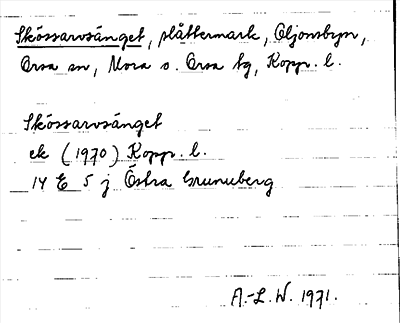 Skössarvsänget, slåttermark, Oljonsbyn,
Orsa sn, Mora o. Orsa tg, Kopp. l.
Skössarvsänget
ek (1970) Kopp. l.
14 E 5 j Östra Grunuberg
A.-L. W. 1971.